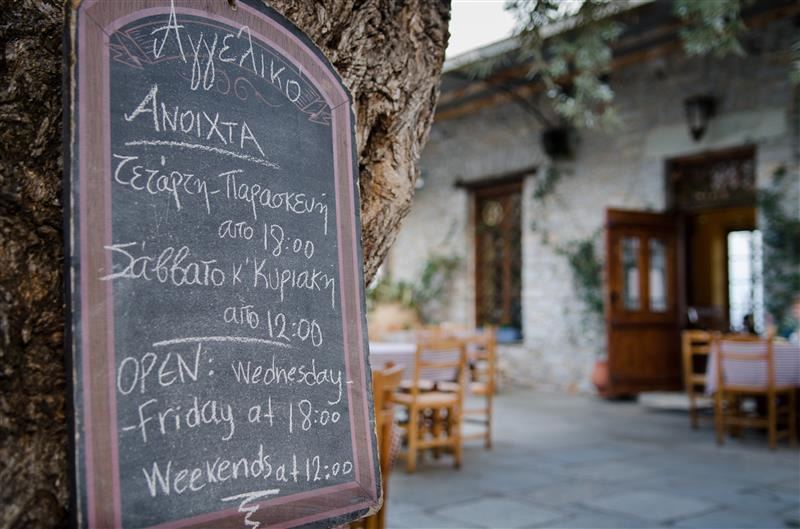 Αγγελικό
ΑΝΟΙΧΤΑ
Τετάρτη-Παρασκευή
απο 18:00
Σάββατο κ' Κυριακή
απο 12:00
OPEN: Wednesday-
-Friday at 18:00
Weekends at 12:00